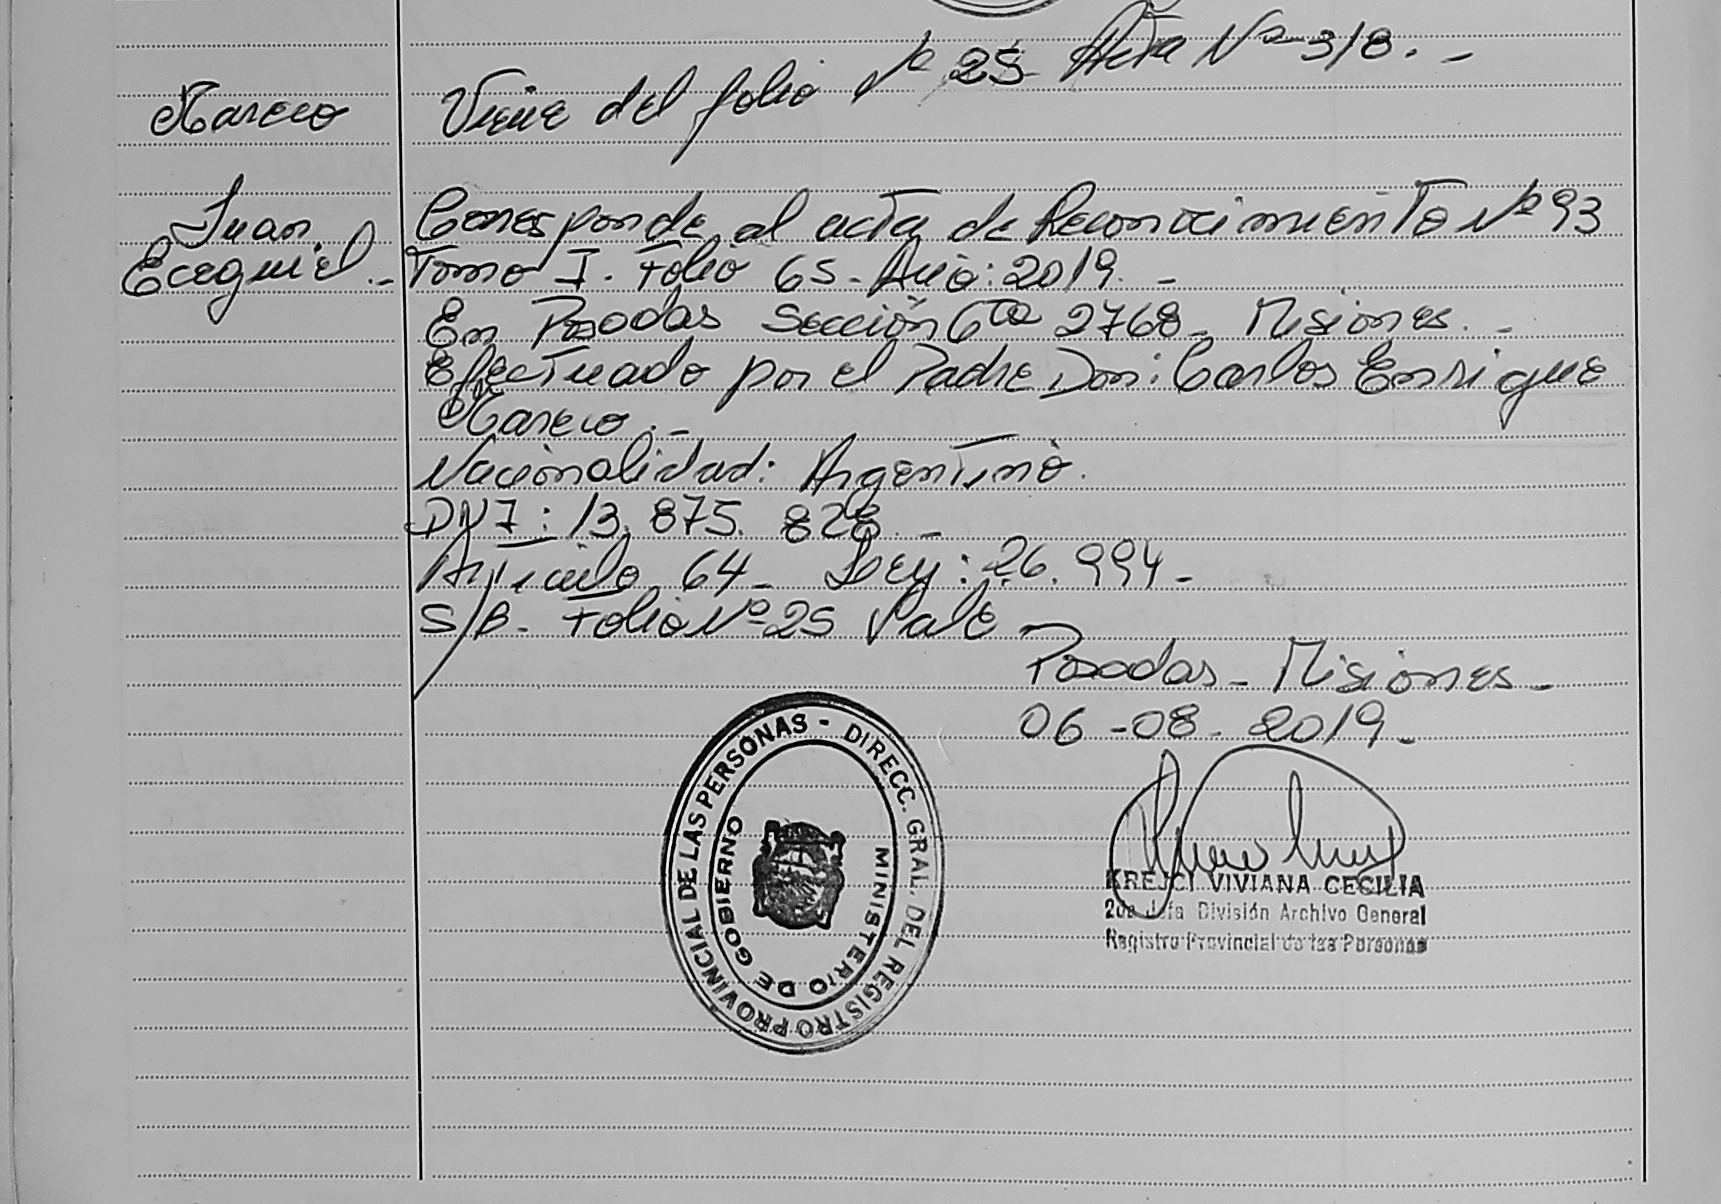 Viene del folio Nº 25 Acta Nº 318.-
Mareco
Juan
Ecequiel.-
Corresponde al acta de Reconocimiento Nº 93
Tomo I. Folio 65- Año: 2019.-
En Posodas Sección 6ta 2768- Misiones.-
Efectuado por el Padre Don: Carlos Enrique
Mareco.-
Nacionalidad: Argentino.
DNI: 13.875.828.-
Artículo 64- Ley: 26.994-
S/B. Folio Nº 25 Vale
Posadas- Misiones-
06-08-2019-
DIRECC. GRAL. DEL REGISTRO PROVINCIAL DE LAS PERSONAS -
MINISTERIO DE GOBIERNO
KREJCI VIVIANA CECILIA
2da Jefa División Archivo General
Registro Provincial de las Personas